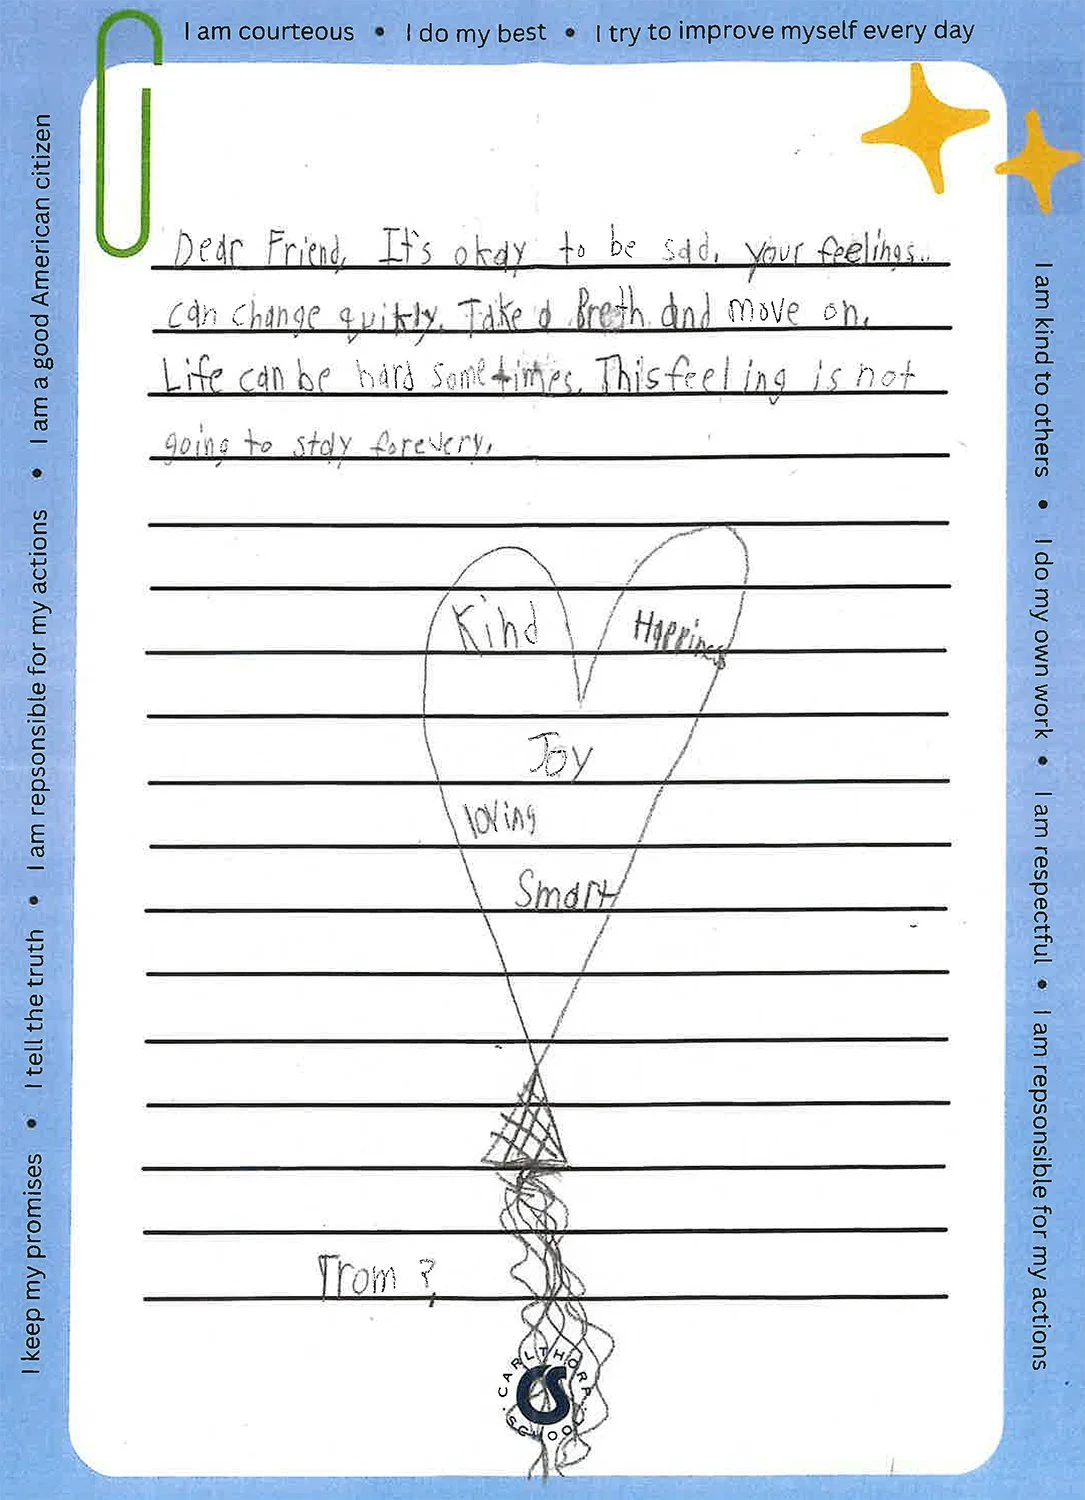 I am courteous • I do my best • I try to improve myself every day
I keep my promises • I tell the truth • I am repsonsible for my actions • I am a good American citizen
I am kind to others • I do my own work • I am respectful • I am repsonsible for my actions
Dear Friend, It's okay to be sad, your feelings..
can change quikly. Take a Breth and move on.
Life can be hard sometimes. This feeling is not
going to stay forevery.
Kind
Happiness
Joy
loving
Smart
From ?
CARLTHORP SCHOOL
CS